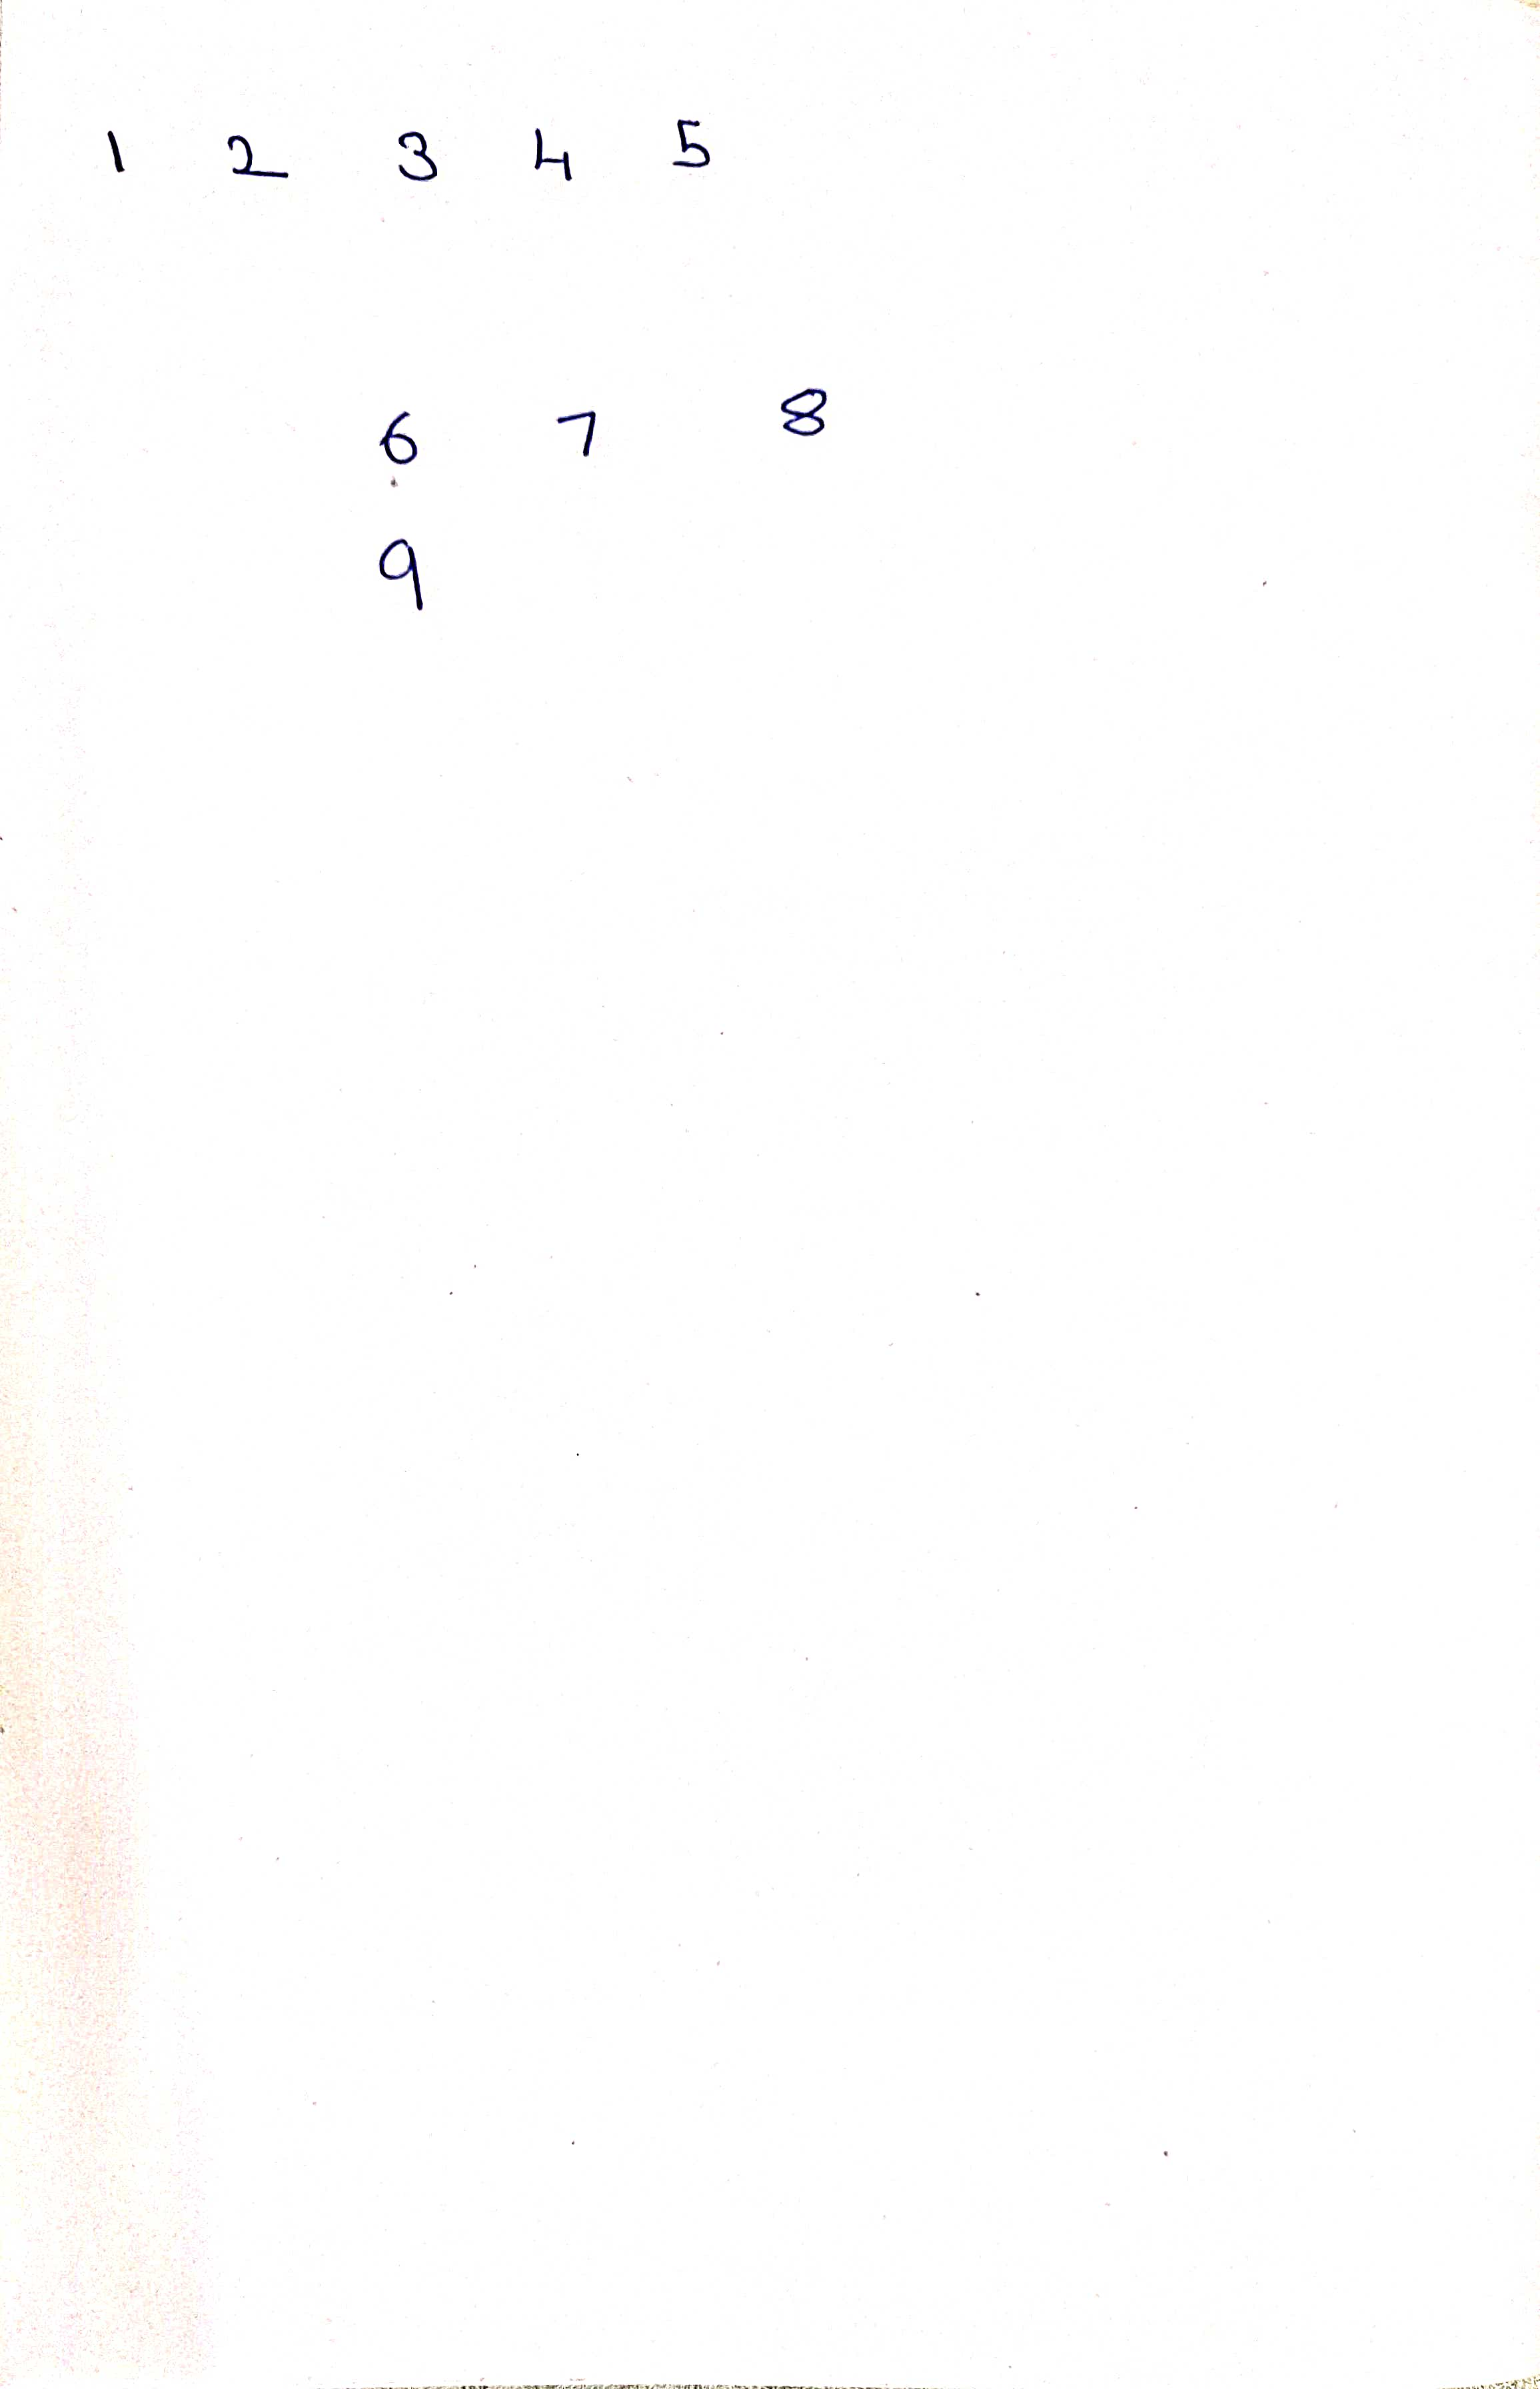 1 2 3 4 5
6 7 8
9